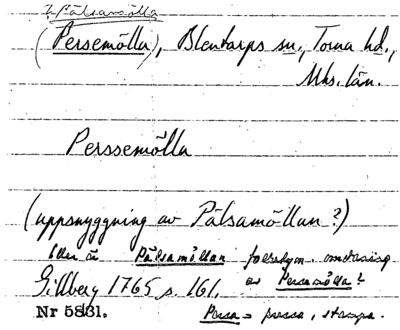 ? Pålsamölla
(Persemölla), Blentarps sn., Torna hd.,
Mhs. län.
Perssemölla
(uppsnyggning av Pålsamöllan?)
Eller är Pålsamöllan folketym. omdaning
av Persamölla?
Gillberg 1765 s. 161.
Nr 5831.
Persa = pressa, stampa.